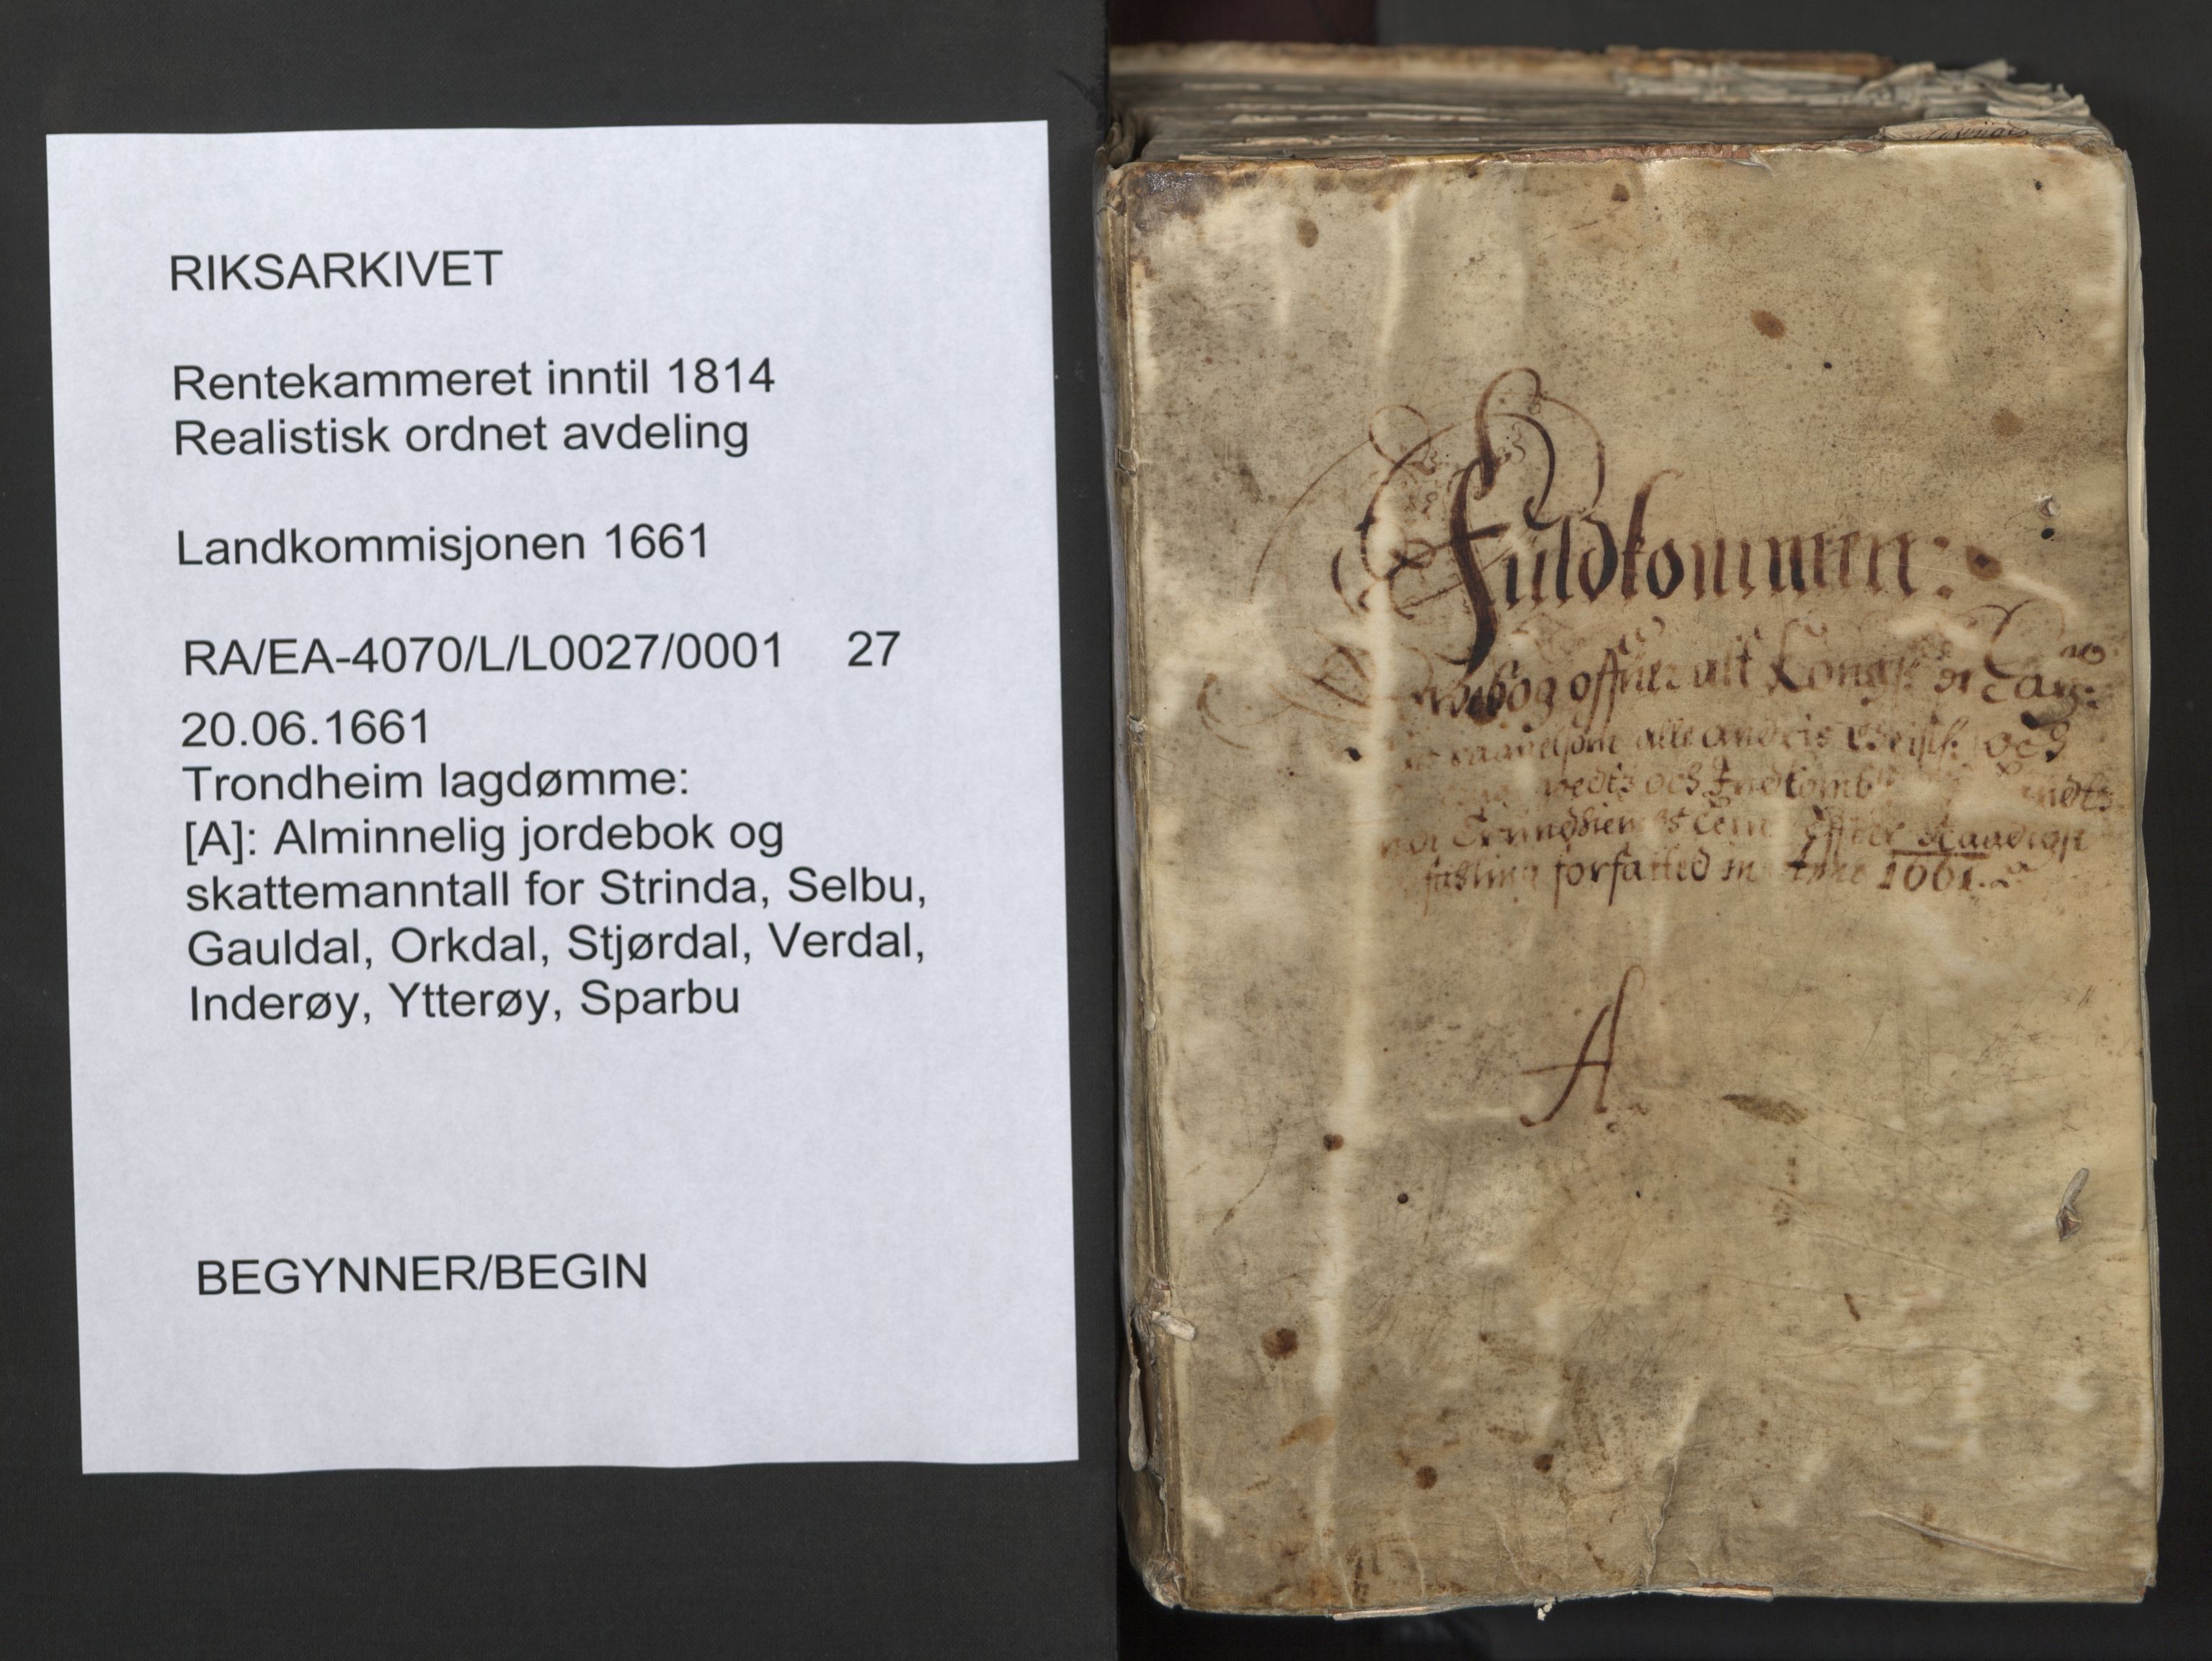 RIKSARKIVET
Rentekammeret inntil 1814
Realistisk ordnet avdeling
Landkommisjonen 1661
RA/EA-4070/L/L0027/0001 27
20.06.1661
Trondheim lagdømme:
[A]: Alminnelig jordebok og
skattemanntall for Strinda, Selbu,
Gauldal, Orkdal, Stjørdal, Verdal,
Inderøy, Ytterøy, Sparbu
BEGYNNER/BEGIN
Fuldkommen:
offuer alt
alle andris och
och Indkomb
Trundhiem Effter
forfatted in Anno 1661.
A